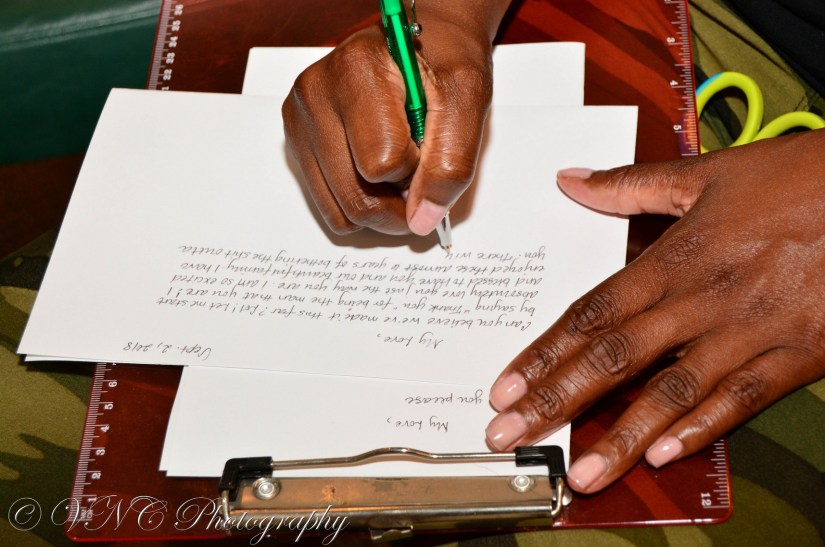 Sept. 2, 2018
My Love,
Can you believe we've made it this far? Lol! Let me start
by saying "Thank you" for being the man that you are! I
absolutely love you just the way you are. I am so excited
and blessed to have you and our beautiful family. I have
enjoyed these almost 6 years of bothering the shit outta
you. There will
My Love,
you please
© VNC Photography
12